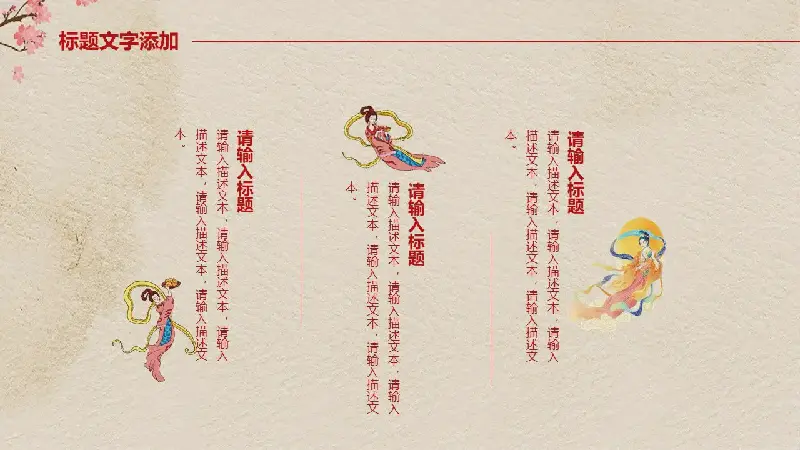 标题文字添加
请输入标题
请输入描述文本，请输入描述文本，请输入
描述文本，请输入描述文本，请输入描述文
本。
请输入标题
请输入描述文本，请输入描述文本，请输入
描述文本，请输入描述文本，请输入描述文
本。
请输入标题
请输入描述文本，请输入描述文本，请输入
描述文本，请输入描述文本，请输入描述文
本。